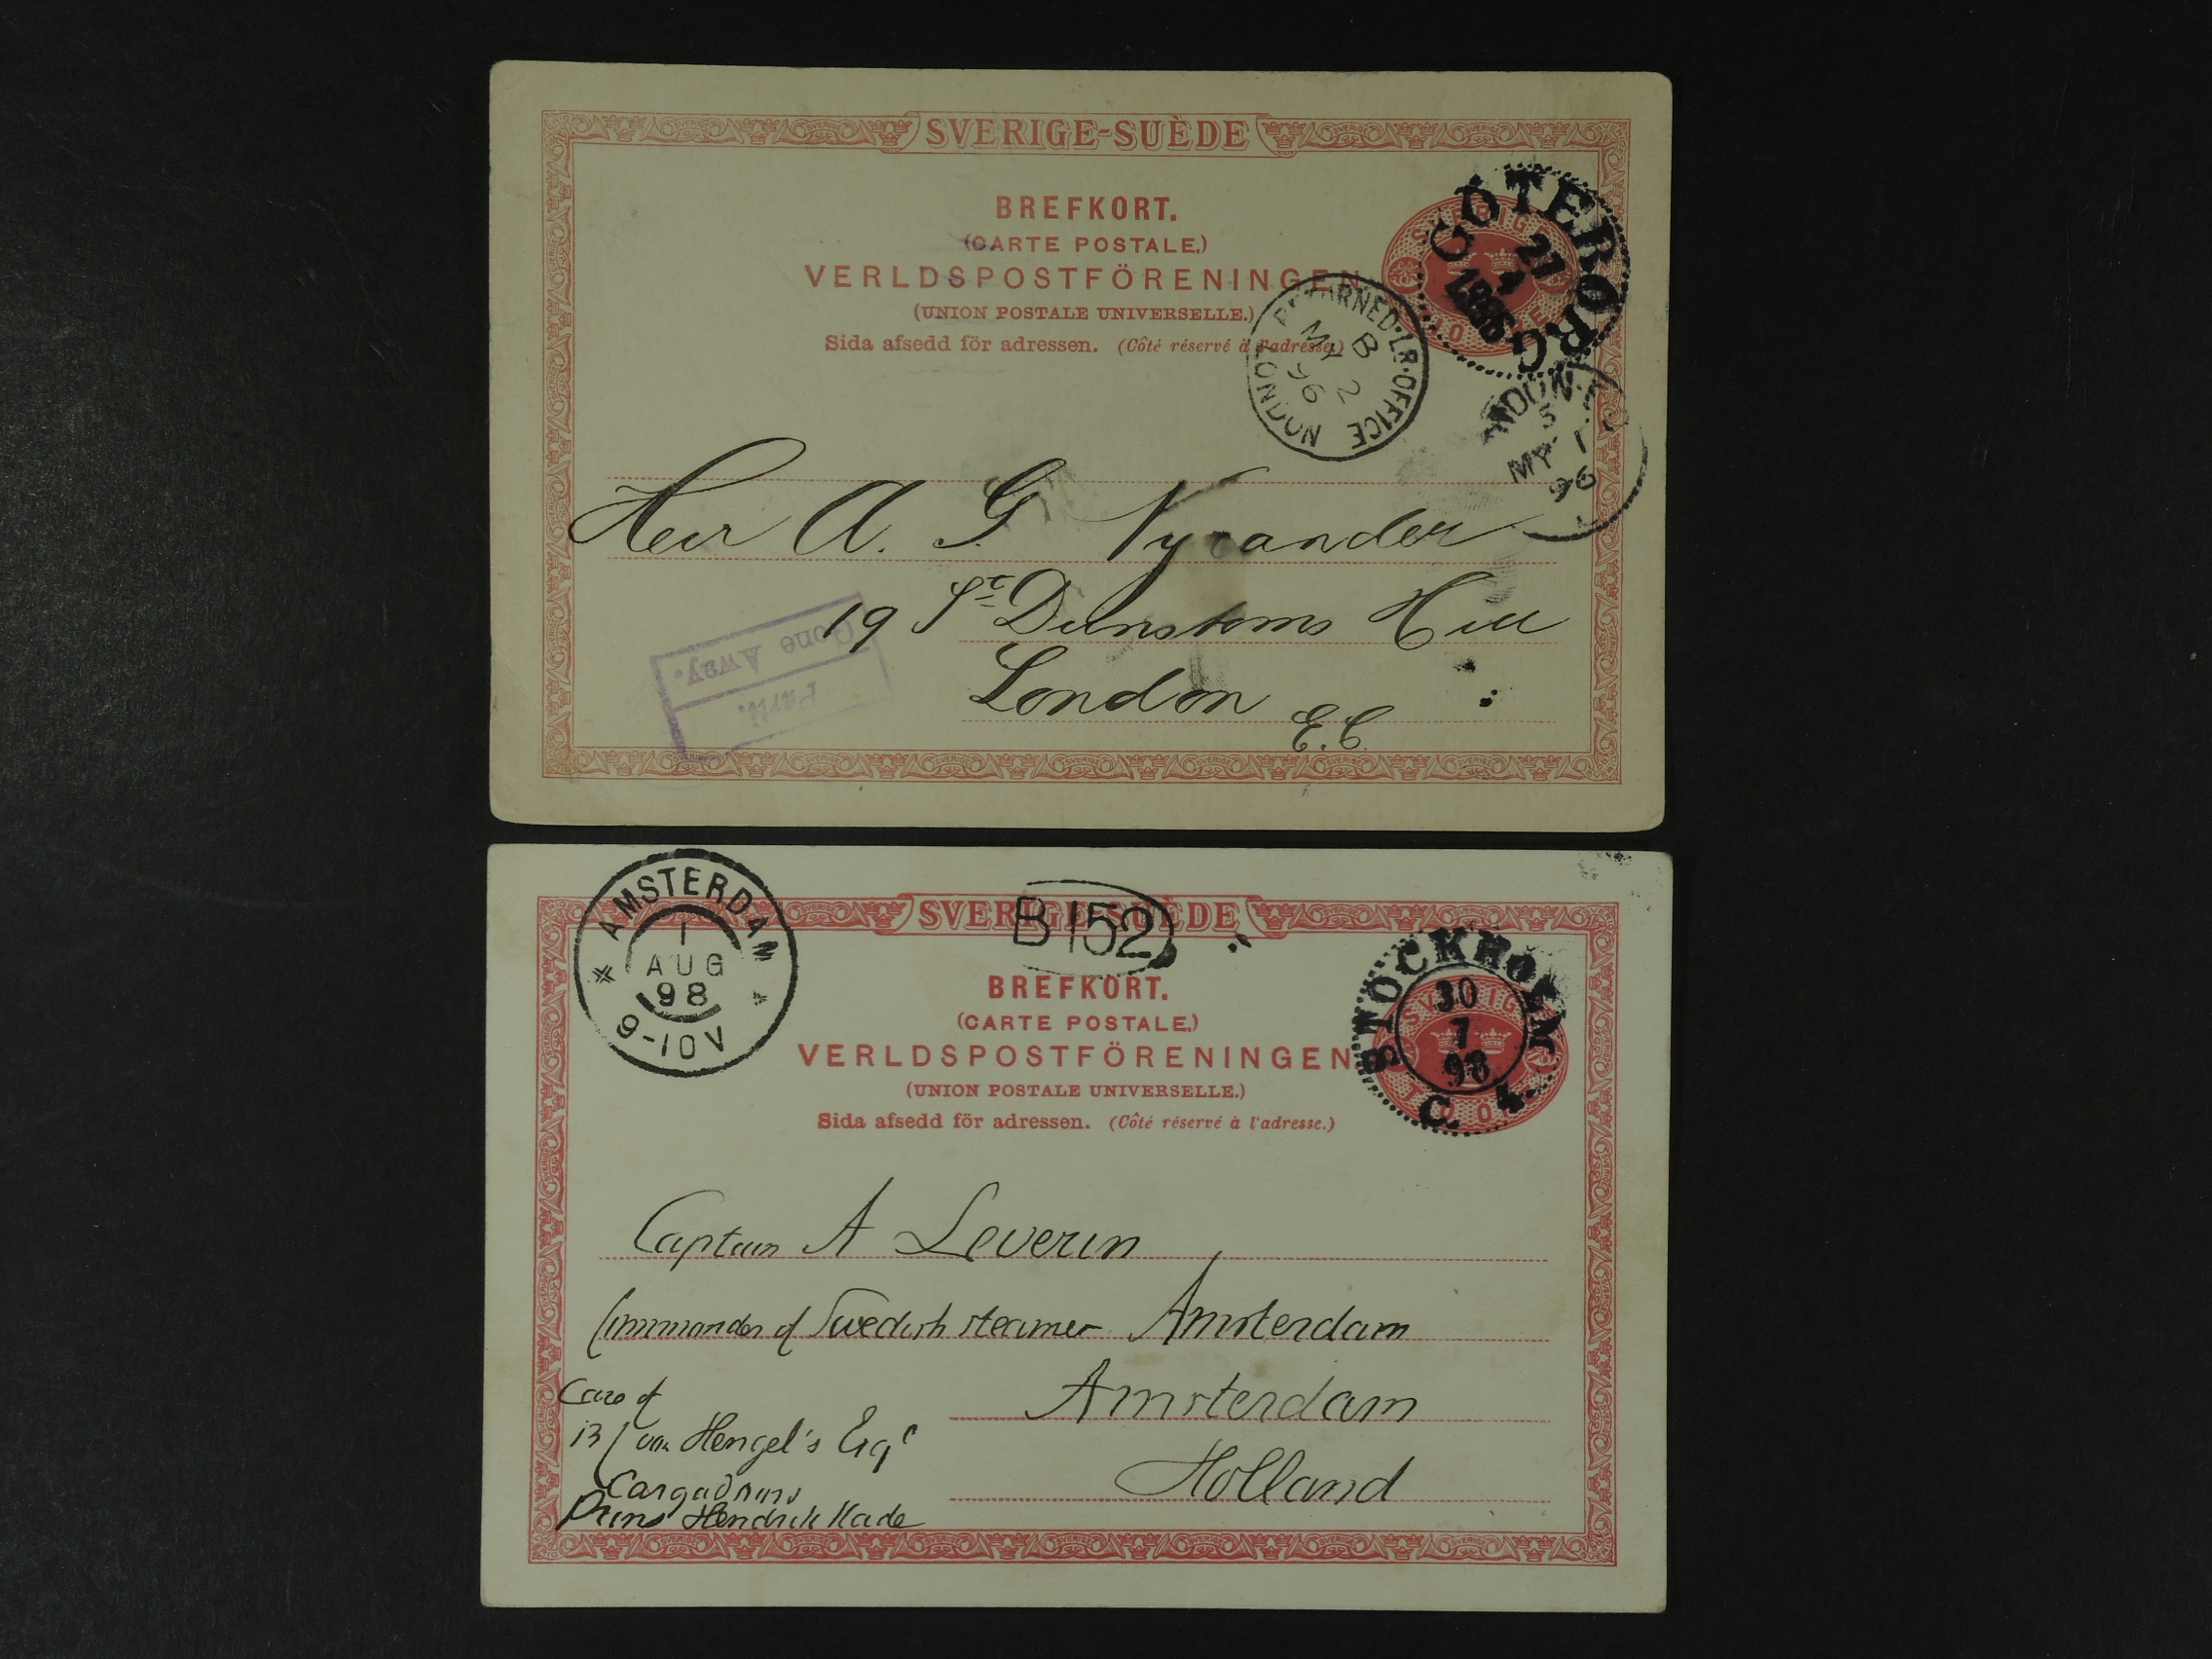 SVERIGE-SUÈDE
BREFKORT.
(CARTE POSTALE.)
VERLDSPOSTFÖRENINGEN
(UNION POSTALE UNIVERSELLE.)
Sida afsedd för adressen. (Côté réservé à l'adresse.)
GÖTEBORG
21
4
1896
RETURNED·LR·OFFICE
B
MY 2
96
LONDON
MY 1
96
Herr A. G Nycander
19 St Dunstans Hill
London
E.C.
Gone Away.
SVERIGE-SUÈDE
B152
AMSTERDAM
1
AUG
98
9-10V
BREFKORT.
(CARTE POSTALE.)
VERLDSPOSTFÖRENINGEN
(UNION POSTALE UNIVERSELLE.)
Sida afsedd för adressen. (Côté réservé à l'adresse.)
STOCKHOLM
30
7
98
C. 4
Captain A Leverin
Commander of Swedish steamer Amsterdam
Care of
B/ van Hengel's Esqr
Prins Hendrik Kade
Amsterdam
Holland